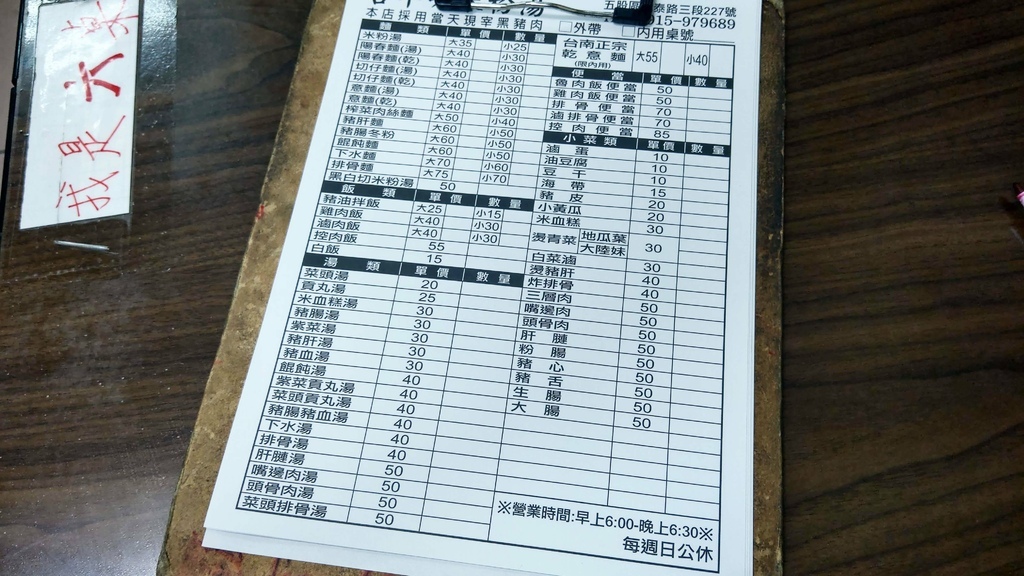 我是六桌
湯
五股
泰路三段227號
915-979689
本店採用當天現宰黑豬肉 □外帶 □內用桌號
單價 數量
米粉湯 大35 小25
陽春麵(湯) 大40 小30
陽春麵(乾) 大40 小30
切仔麵(湯) 大40 小30
切仔麵(乾) 大40 小30
意麵(湯) 大40 小30
意麵(乾) 大40 小30
榨菜肉絲麵 大50 小40
豬肝麵 大60 小50
豬腸冬粉 大60 小50
餛飩麵 大60 小50
下水麵 大70 小60
排骨麵 大75 小70
黑白切米粉湯 50
飯類 單價 數量
豬油拌飯 大25 小15
雞肉飯 大40 小30
滷肉飯 大40 小30
控肉飯 55
白飯 15
湯類 單價 數量
菜頭湯 20
貢丸湯 25
米血糕湯 30
豬腸湯 30
紫菜湯 30
豬肝湯 30
豬血湯 30
餛飩湯 40
紫菜貢丸湯 40
菜頭貢丸湯 40
豬腸豬血湯 40
下水湯 40
排骨湯 40
肝腱湯 50
嘴邊肉湯 50
頭骨肉湯 50
菜頭排骨湯 50
台南正宗
乾意麵 大55 小40
(限內用)
便當 單價 數量
滷肉飯便當 50
雞肉飯便當 50
排骨便當 70
滷排骨便當 70
控肉便當 85
小菜類 單價 數量
滷蛋 10
油豆腐 10
豆干 10
海帶 15
豬皮 20
小黃瓜 20
米血糕 30
燙青菜 地瓜葉 大陸妹 30
白菜滷 30
燙豬肝 40
炸排骨 40
三層肉 50
嘴邊肉 50
頭骨肉 50
肝腱 50
粉腸 50
豬心 50
豬舌 50
生腸 50
大腸 50
※營業時間:早上6:00-晚上6:30※
每週日公休